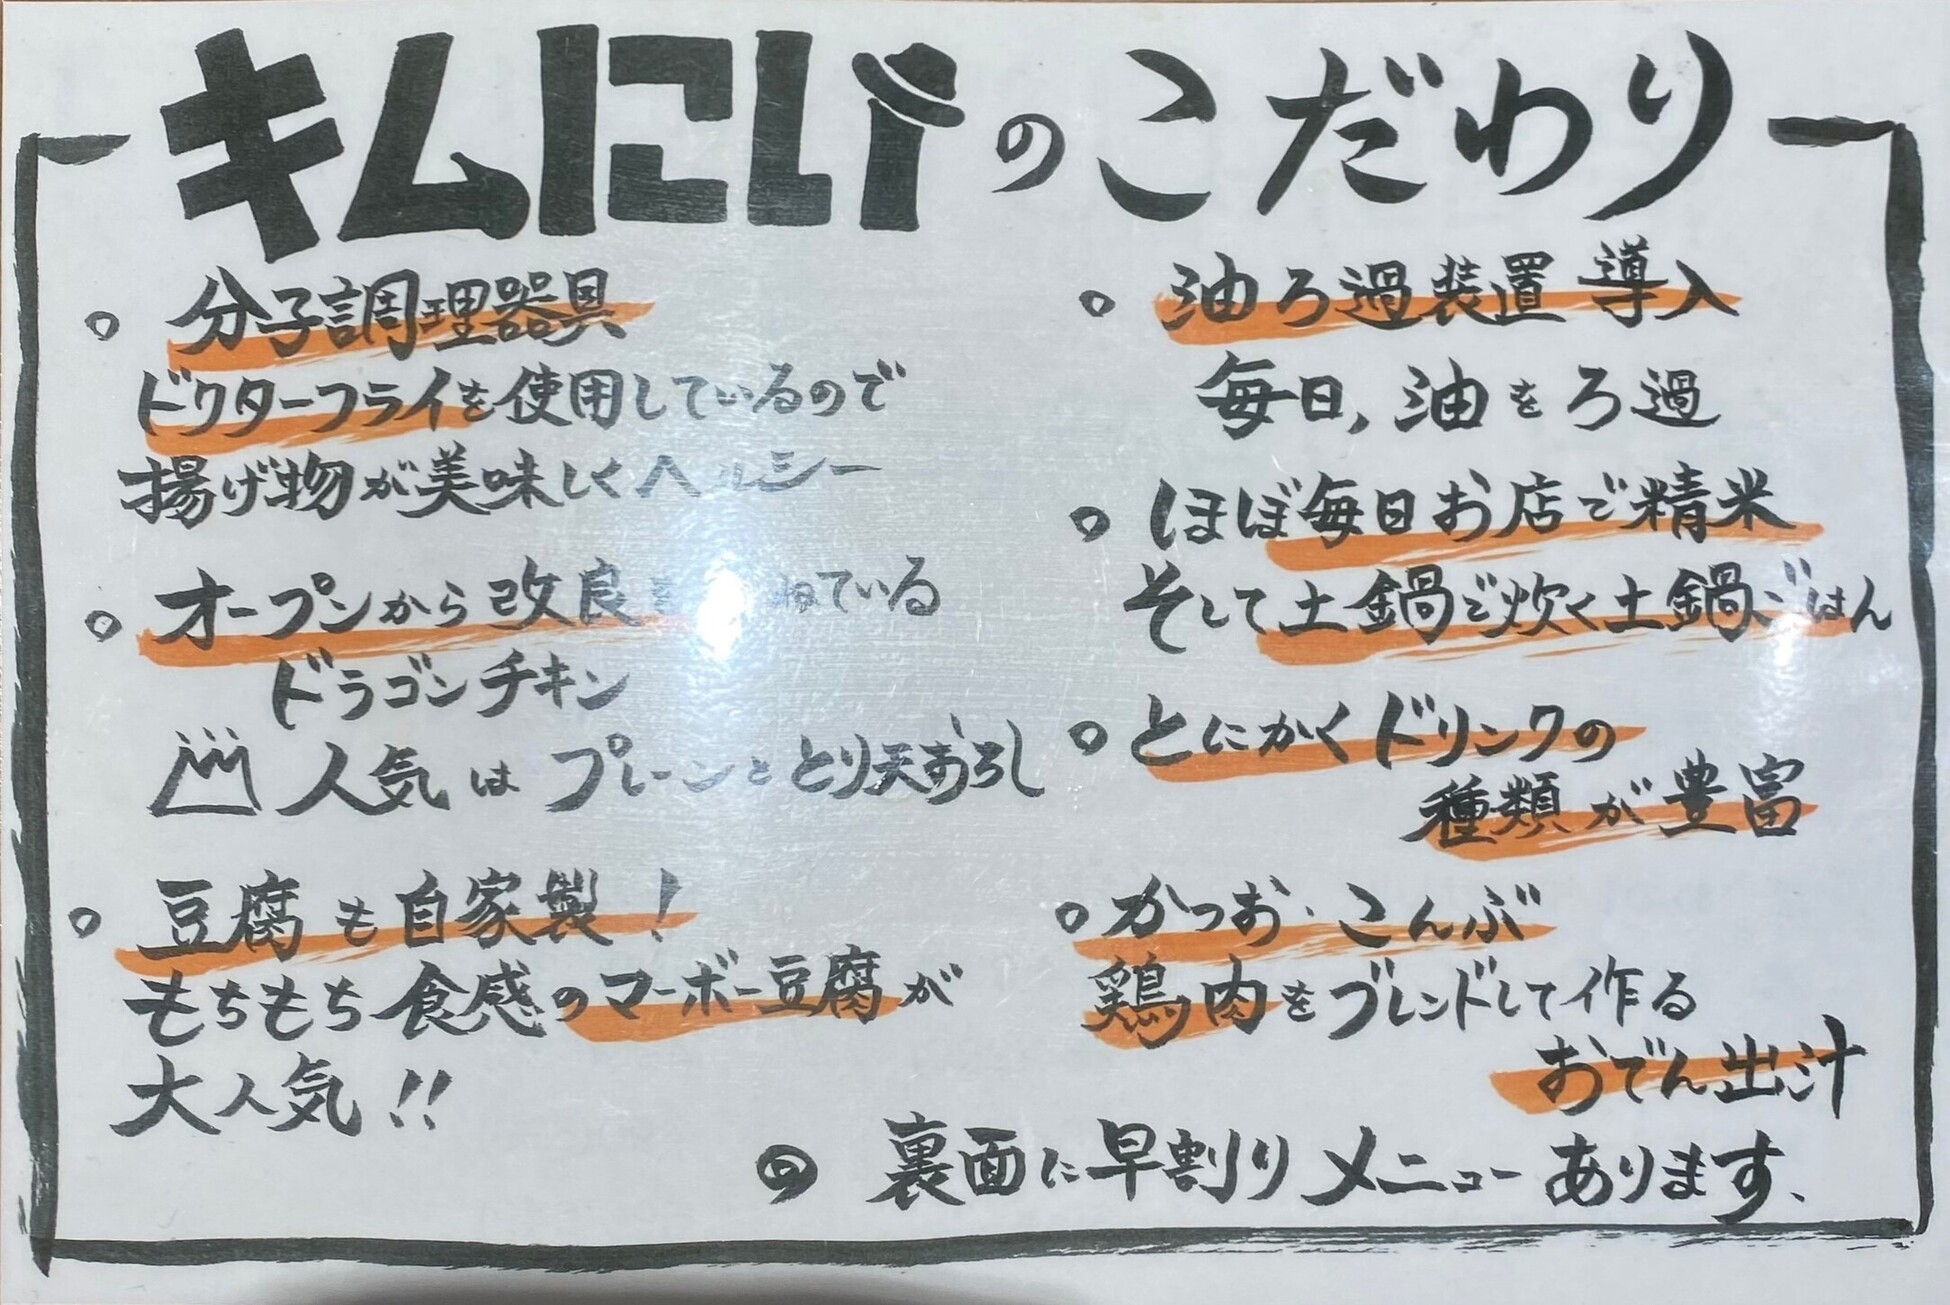 キムにいのこだわり
。分子調理器具
ドクターフライを使用しているので
揚げ物が美味しくヘルシー
。オープンから改良を重ねている
ドラゴンチキン
人気はプレーンととり天おろし
。豆腐も自家製!
もちもち食感のマーボー豆腐が
大人気!!
。油ろ過装置導入
毎日、油をろ過
。ほぼ毎日お店で精米
そして土鍋で炊く土鍋ごはん
。とにかくドリンクの
種類が豊富
。かつお・こんぶ
鶏肉をブレンドして作る
おでん出汁
◎裏面に早割りメニューあります、